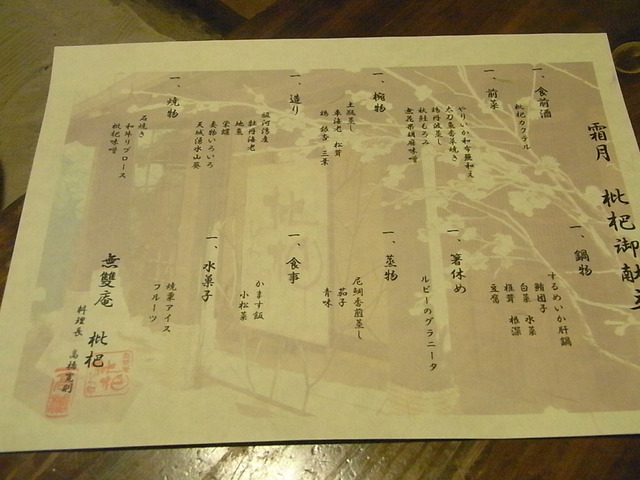 霜月 枇杷御献立
一、食前酒
枇杷カクテル
一、前菜
やりいか和布蕪和え
太刀魚香草焼き
秋鮭もろみ
無花果胡麻味噌
一、椀物
土瓶蒸し
車海老 松茸
鶏 銀杏 三葉
一、造り
駿河湾産
牡丹海老
地魚
栄螺
妻物いろいろ
天城湧水山葵
一、焼物
石焼き
和牛リブロース
枇杷味噌
一、鍋物
するめいか肝鍋
鮪団子
白菜 水菜
椎茸 根深
豆腐
一、箸休め
ルビーのグラニータ
一、蒸物
尼鯛香煎蒸し
茄子
青味
一、食事
かます飯
小松菜
一、水菓子
焼栗アイス
フルーツ
無雙庵 枇杷
料理長